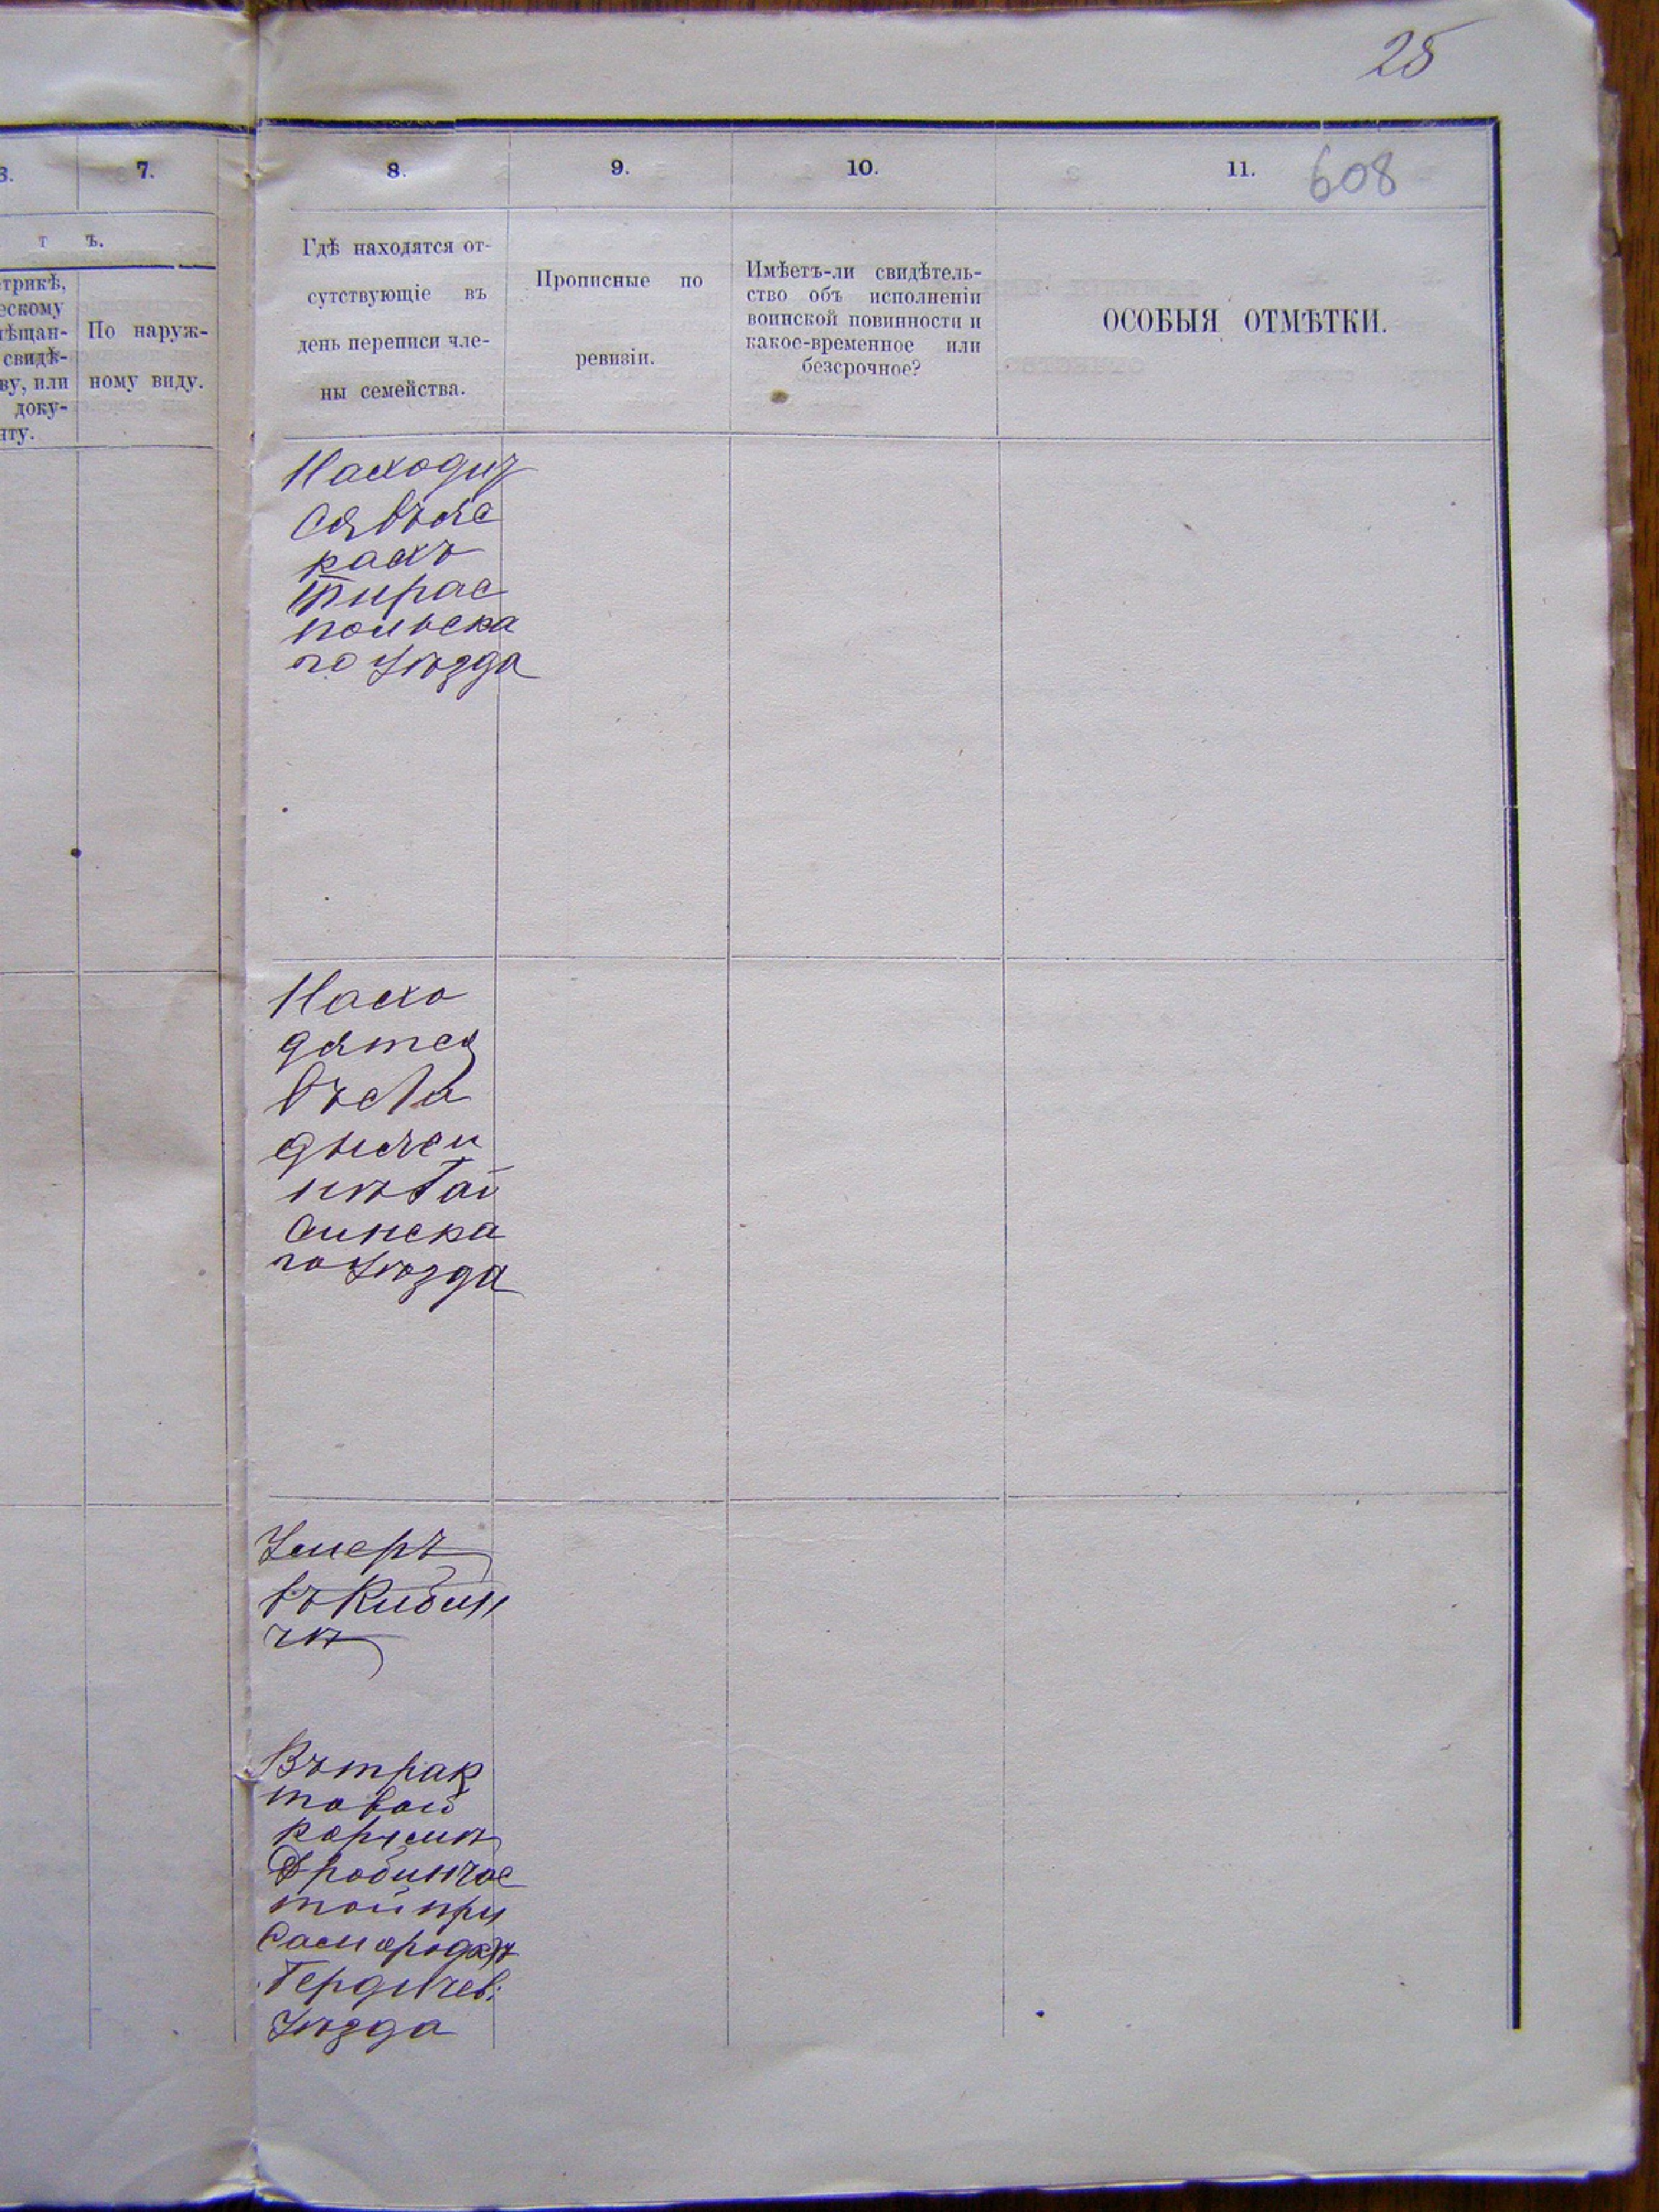 25
608
6.
7.
8.
9.
10.
11.
т ъ.
трикѣ,
ескому
мѣщан-
свидѣ-
ву, или
доку-
нту.
По наруж-
ному виду.
Гдѣ находятся от-
сутствующіе въ
день переписи чле-
ны семейства.
Прописные по
ревизіи.
Имѣетъ-ли свидѣтель-
ство объ исполненіи
воинской повинности и
какое-временное или
безсрочное?
ОСОБЫЯ ОТМѢТКИ.
Находит
ся въ
рахъ
Тирас
польска
го Уѣзда
Нахо
дятся
въ Ла
дыжен
кѣ Гай
синска
го Уѣзда
Умеръ
въ Кибин
чѣ
Въ трак
товой
корчмѣ
при
Самородкѣ
Бердичев:
Уѣзда